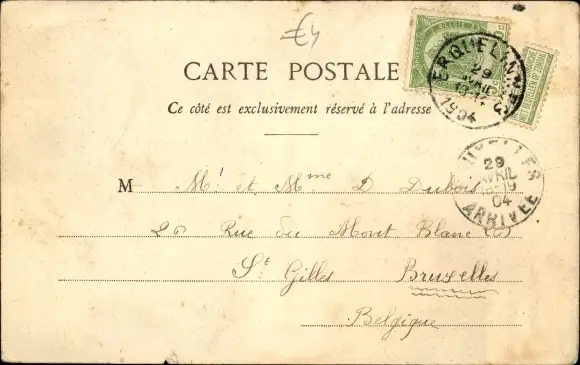 €4
CARTE POSTALE
Ce côté est exclusivement réservé à l'adresse
ERQUELINNES
29
AVRIL
1904
IXELLES
29
AVRIL
18-19
04
ARRIVÉE
M Mr et Mme D Dubois
26 Rue du Mont Blanc
St Gilles Bruxelles
Belgique